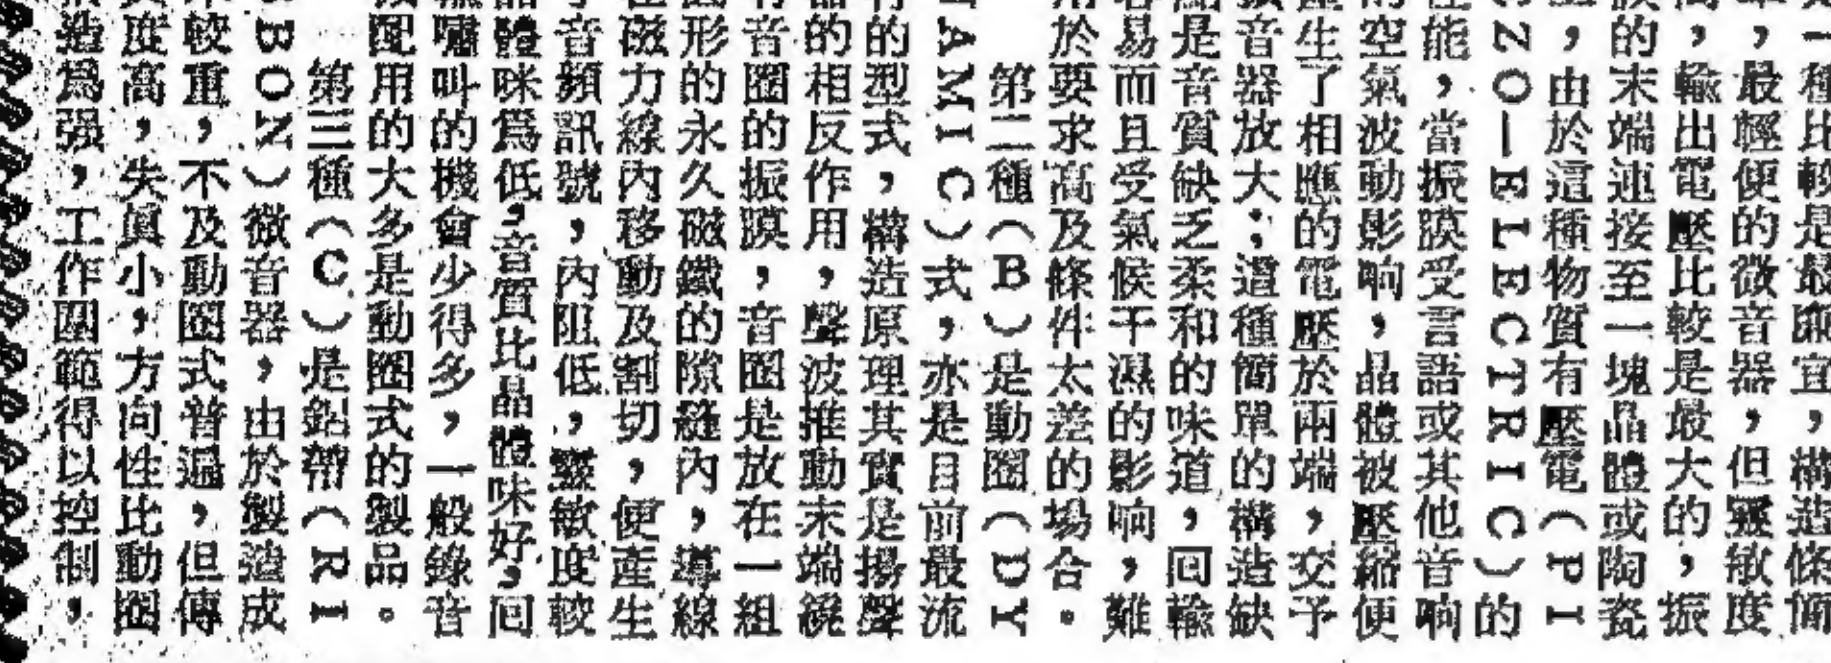 是一種比較是最廉宜，構造條簡
單，最輕便的微音器，但靈敏度
高，輸出電壓比較是最大的，振
膜的末端連接至一塊晶體或陶瓷
，由於這種物質有壓電（PI
EZO—ELECTRIC）的
性能，當振膜受言語或其他音响
的空氣波動影响，晶體被壓縮便
產生了相應的電壓於兩端，交予
擴音器放大；這種簡單的構造缺
點是音質缺乏柔和的味道，回輸
容易而且受氣候干濕的影响，難
用於要求高及條件太差的場合。
第二種（B）是動圈（DY
NAMIC）式，亦是目前最流
行的型式，構造原理其實是揚聲
器的相反作用，聲波推動末端繞
有音圈的振膜，音圈是放在一組
形的永久磁鐵的隙縫內，導線
在磁力線內移動及割切，便產生
音頻訊號，內阻低，靈敏度較
晶體咪爲低，音質比晶體味好，回
嘯叫的機會少得多，一般錄音
配用的大多是動圈式的製品。
第三種（C）是鋁帶（RI
BBON）微音器，由於製造成
較重，不及動圈式普遍，但傳
度高，失眞小，方向性比動圈
造爲强，工作圍範得以控制，